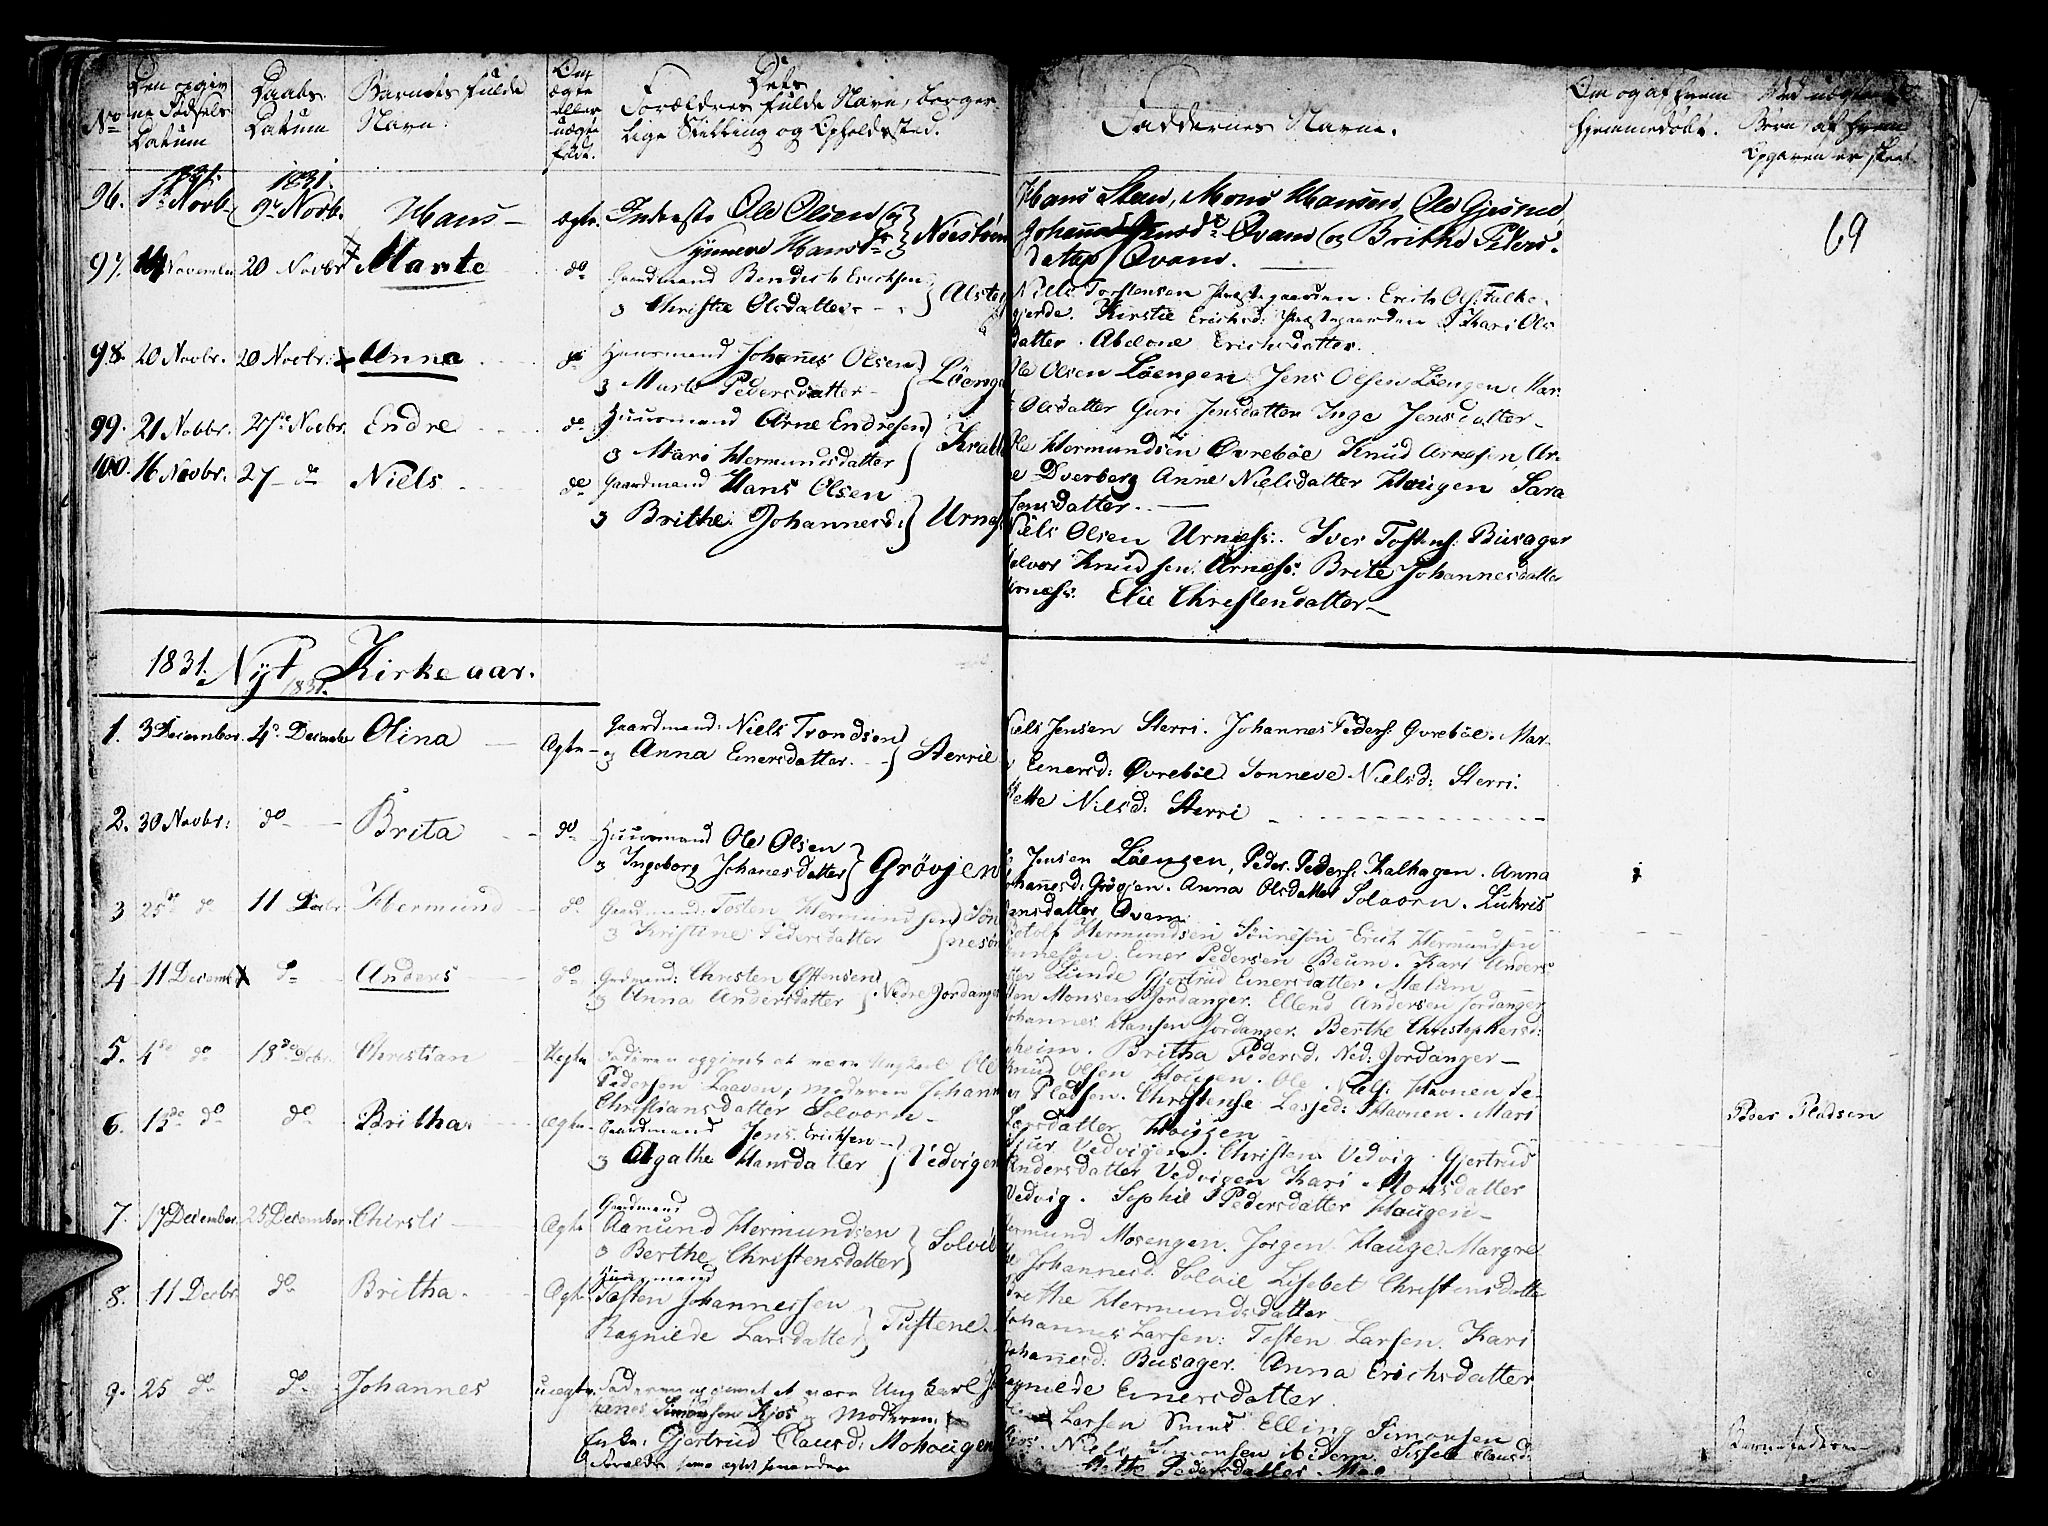 No
Den opgiv
ne Fødsels
Datum
Daabs
Datum
Barnets fulde
Navn.
Om
ægte
eller
uægte
født.
Dets
Forældres fulde Navn, borger
lige Stilling og Opholdssted.
Faddernes Navne.
Om og af hvem
hjemmedøbt.
Ved uægte
Børn, af hvem
Opgaven er skeet
69
1831.
96. Novb. 9de Novb. Hans ægte. Inderste Ole Olsen og
Synneve Hansdtr
Hans Steen, Mons Hansen, Ole Gjesme
Johanna Jensdtr Qvam og Brithe Peders
datter Qvam.
97. 14 November 20 Novbr Marte do Gaardmand Bendict Ericksen
og Christie Olsdatter
Niels Torstensen Præstegaarden. Erich Ols: Falke
gierde. Kirstie Erichsd: Præstegaarden Kari Ols
datter. Abelone Erichsdatter.
98. 20 Novbr. 20 Novbr: Anna do Huusmand Johannes Olsen
og Marte Pedersdatter Löenge
Ole Olsen Löengen Jens Olsen Löengen Mar
Olsdatter Guri Jensdatter Inge Jensdatter
99. 21 Nobbr. 27de Novbr. Endre do Huusmand Arne Endresen
og Mari Hermundsdatter
Ole Hermundsen Øvreböe Knud Arnesen Ar
ne Dverberg Anne Nielsdatter Haugen Sara
Jensdatter.
100. 16 Novbr. 27 do Niels do Gaardmand Hans Olsen
og Brithe Johannesd: Urnæs
Niels Olsen Urnæss. Iver Tostens: Busager
Halvor Knudsen Arnæss. Brite Johannesdatter
Urnæss: Elie Christensdatter
1831. Nyt Kirkeaar.
1831.
1. 3 December 4de December Olina Ægte Gaardmand: Niels Trondsen
og Anna Einersdatter. Sterrie
Niels Jensen Sterri. Johannes Peders: Qvreböe. Mar
Einersd: Øvreböe Sonneve Nielsd: Sterri.
Mette Nielsd: Sterri
2. 30 Novbr: do Brita do Huusmand Ole Olsen
og Ingeborg Johanesdatter Grövjen
Jensen Löengen, Peder Peders: Kalhagen. Anna
Johannesd: Grövjen. Anna Olsdatter Solvorn. Lukris
Jensdatter Qvam
3 25de do 11 Decbr Hermund do Gaardmand: Tosten Hermundsen
og Kristine Pedersdatter
Botolf Hermundsen Sönnesön Erich Hermundsen
Sönnesön Einer Pedersen Beum. Kari Anders
datter Lunde Gjertrud Einersdatter Mælum
4 11 Decemb do Anders do Grdmand: Christen Offensen
og Anna Andersdatter Nedre Jordanger
Monsen Jordanger. Ellend Andersen Jordanger
Johannes Hansen Jordanger. Berthe Christophersd:
Britha Pedersd: Ned: Jordanger
5. 4de do 18de Debr. Christian Uegte Faderen opgivet at være Ungkarl Ole
Pedersen Laaven, moderen Johanne
Christiansdatter Solvorn
Knud Olsen Hougen. Ole Havnen Pe
er Pladsen. Christense Lassed: Havnen. Mari
Larsdatter Hougen
Peer Pladsen
6. 13de do do Britha. ægte Gaardmand Jens Ericksen
og Agathe Hansdatter Vedvigen
Vedvigen. Christen Vedvig Gjertrud
Andersdatter Vedvigen Kari Monsdatter
Vedvig. Sophie Pedersdatter Haugen
7. 17 December 25 December Chirsti Ægte Gaardmand
Aanund Hermundsen
og Berthe Christensdatter Solvie
Hermund Mosengen. Jörgen Hauge Margre
the Johannesd. Solvie Lisebet Christensdatter
Brithe Hermundsdatter
8. 11 Decbr do Britha. Ægte Huusmand
Tosten Johannessen
Ragnilde Larsdatter Tustene.
Johannes Larsen: Tosten Larsen Kari
Johannesd: Busager. Anna Erichsdatter
Ragnilde Einersdatter.
9. 25 do do Johannes uægte Faderen opgivet at være Ungkarl Jo
hannes Simonsen Kjos og Moderen:
Enke: Gjertrud Clausd: Mohougen
Larsen Elling Simonsen
Kjos. Niels Simonsen ibidem. Sissele Clausd:
Mette Pedersdatter Moe
Barnefaderen